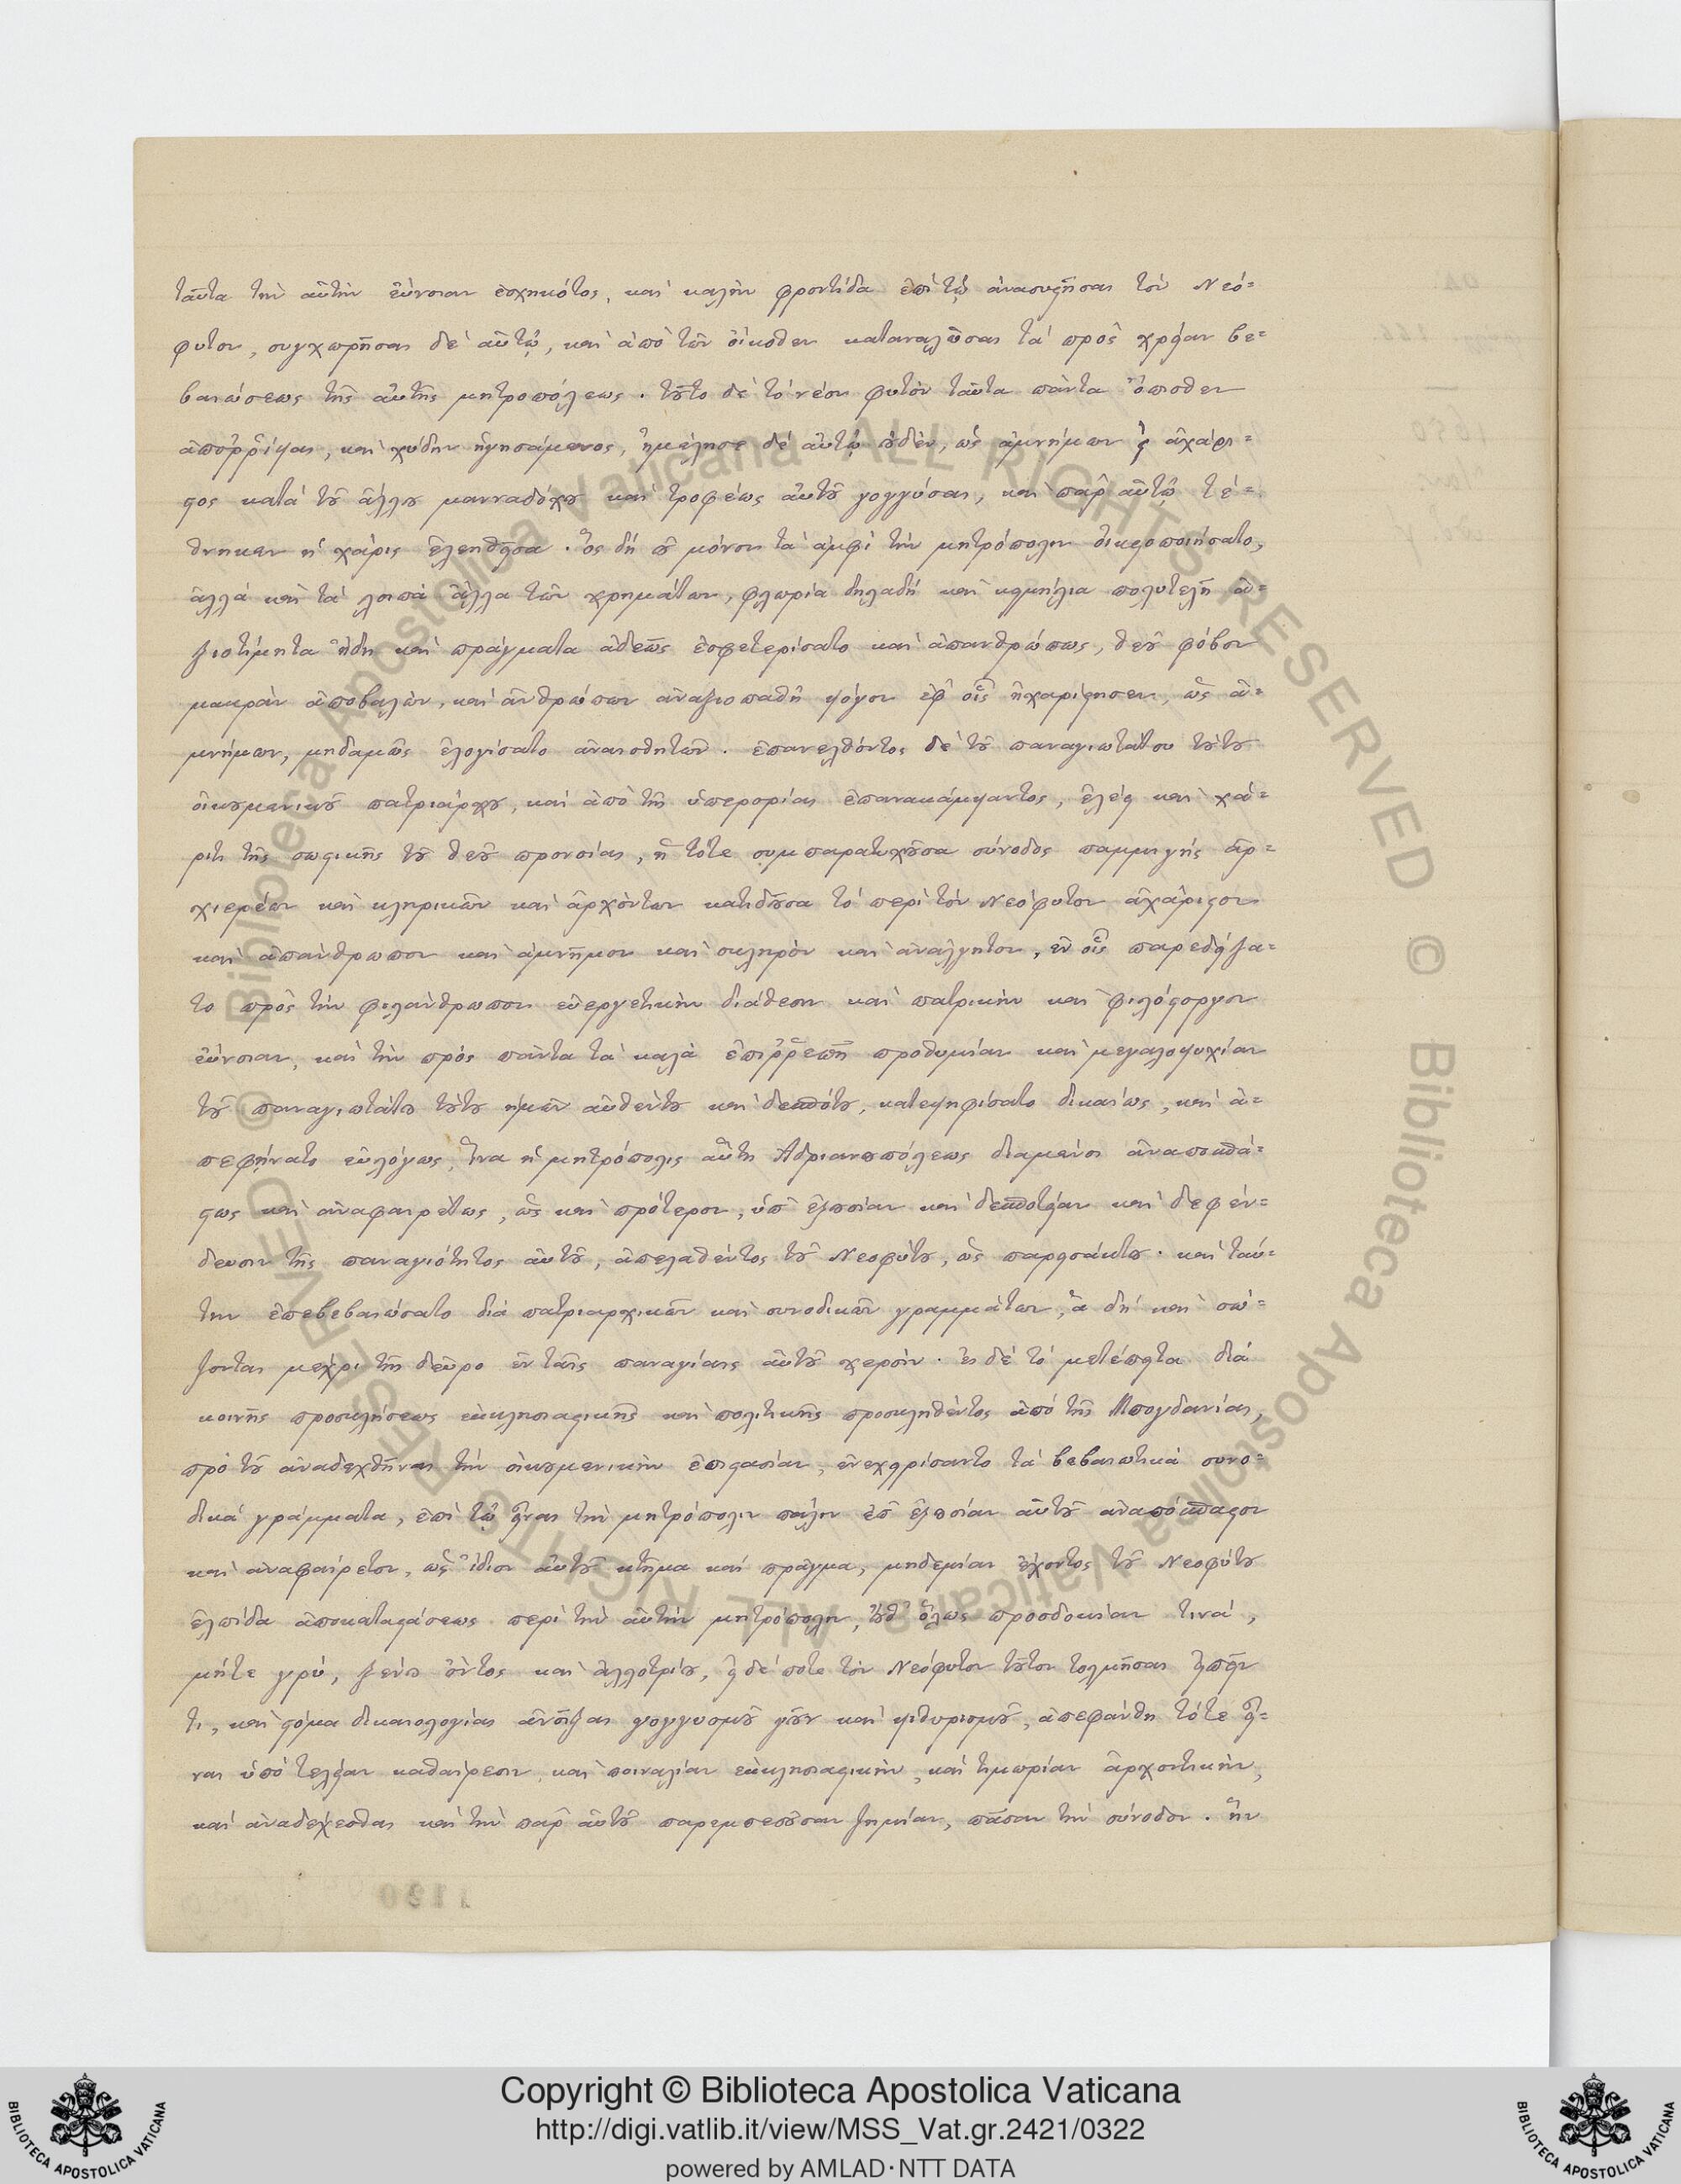 ταῦτα τὴν αὐτὴν εὔνοιαν ἐσχηκότος, καὶ καλὴν φροντίδα ἐπὶ τῷ ἀνασυστῆσαι τὸν Νεό=
φυτον, συγχωρῆσαι δὲ αὐτῷ, καὶ ἀπὸ τῶν οἴκοθεν καταναλῶσαι τὰ πρὸς χρείαν βε=
βαιώσεως τῆς αὐτῆς μητροπόλεως. τοῦτο δὲ τὸ νέον φυτὸν ταῦτα πάντα ὄπισθεν
ἀποῤῥίψαν, καὶ χύδην ἡγησάμενος, ἠμέλησε δὲ αὐτῷ οὐδὲν, ὡς ἀμνήμων καὶ ἀχάρι=
στος κατὰ τοῦ ἄλλου μανναδόχου καὶ τροφέως αὐτοῦ γογγύσαι, καὶ παρ' αὐτῷ τέ=
θνηκεν ἡ χάρις ἐλεηθεῖσα. ὃς δὴ οὐ μόνον τὰ ἀμφὶ τὴν μητρόπολιν ᾠκειοποιήσατο,
ἀλλὰ καὶ τὰ λοιπὰ ἄλλα τῶν χρημάτων, φλωρία δηλαδὴ καὶ κειμήλια πολυτελῆ ἀ=
ξιοτίμητα εἴδη καὶ πράγματα ἀδεῶς ἐσφετερίσατο καὶ ἀπανθρώπως, θεοῦ φόβον
μακρὰν ἀποβαλὼν, καὶ ἀνθρώπων ἀναξιοπαθῆ ψόγον ἐφ' οἷς ἠχαρίστησεν, ὡς ἀ=
μνήμων, μηδαμῶς ἐλογίσατο ἀναισθητῶν. ἐπανελθόντος δὲ τοῦ παναγιωτάτου τούτου
οἰκουμενικοῦ πατριάρχου, καὶ ἀπὸ τῆς ὑπερορίας ἐπανακάμψαντος, ἐλέει καὶ χά=
ριτι τῆς σωστικῆς τοῦ θεοῦ προνοίας, ἡ τότε συμπαρατυχοῦσα σύνοδος παμμιγὴς ἀρ=
χιερέων καὶ κληρικῶν καὶ ἀρχόντων κατιδοῦσα τὸ περὶ τὸν Νεόφυτον ἀχάριστον
καὶ ἀπάνθρωπον καὶ ἀμνῆμον καὶ σκληρὸν καὶ ἀνάλγητον, ἐν οἷς παρεδείξα=
το πρὸς τὴν φιλάνθρωπον εὐεργετικὴν διάθεσιν καὶ πατρικὴν καὶ φιλόστοργον
εὔνοιαν, καὶ τὴν πρὸς πάντα τὰ καλὰ ἐπιῤῥεπῆ προθυμίαν καὶ μεγαλοψυχίαν
τοῦ παναγιωτάτου τούτου ἡμῶν αὐθέντου καὶ δεσπότου, κατεψηφίσατο δικαίως, καὶ ἀ=
πεφήνατο εὐλόγως, ἵνα ἡ μητρόπολις αὕτη Ἀδριανουπόλεως διαμείνοι ἀναποσπά=
στως καὶ ἀναφαιρέτως, ὡς καὶ πρότερον, ὑπ' ἐξουσίαν καὶ δεσποτείαν καὶ δεφέν=
δευσιν τῆς παναγιότητος αὐτοῦ, ἀπελαθέντος τοῦ Νεοφύτου, ὡς παρεισάκτου. καὶ ταύ=
την ἐπεβεβαιώσατο διὰ πατριαρχικῶν καὶ συνοδικῶν γραμμάτων, ἃ δὴ καὶ σώ=
ζονται μέχρι τῆς δεῦρο ἐν ταῖς παναγίαις αὐτοῦ χερσίν. ἐς δὲ τὸ μετέπειτα διὰ
κοινῆς προσκλήσεως ἐκκλησιαστικῆς καὶ πολιτικῆς προσκληθέντος ἀπὸ τῆς Μπογδανίας,
πρὸ τοῦ ἀναδεχθῆναι τὴν οἰκουμενικὴν ἐπιστασίαν, ἐνεχειρίσαντο τὰ βεβαιωτικὰ συνο=
δικὰ γράμματα, ἐπὶ τῷ εἶναι τὴν μητρόπολιν πάλιν ὑπ' ἐξουσίαν αὐτοῦ ἀναπόσπαστον
καὶ ἀναφαίρετον, ὡς ἴδιον αὐτοῦ κτῆμα καὶ πρᾶγμα, μηδεμίαν ἔχοντος τοῦ Νεοφύτου
ἐλπίδα ἀποκαταστάσεως περὶ τὴν αὐτὴν μητρόπολιν, οὐθ' ὅλως προσδοκίαν τινά,
μήτε γρύ, ξένου ὄντος καὶ ἀλλοτρίου, εἰ δέ ποτε τὸν Νεόφυτον τοῦτον τολμῆσαι εἰπεῖν
τι, καὶ στόμα δικαιολογίας ἀνοῖξαι γογγυσμοῦ γοῦν καὶ ψιθυρισμοῦ, ἀπεφάνθη τότε εἶ=
ναι ὑπὸ τελείαν καθαίρεσιν, καὶ ποιναλίαν ἐκκλησιαστικὴν, καὶ τιμωρίαν ἀρχοντικὴν,
καὶ ἀναδέχεσθαι καὶ τὴν παρ' αὐτοῦ παρεμπεσοῦσαν ζημίαν, πᾶσαν τὴν σύνοδον. ἣν
Copyright © Biblioteca Apostolica Vaticana
http://digi.vatlib.it/view/MSS_Vat.gr.2421/0322
powered by AMLAD·NTT DATA